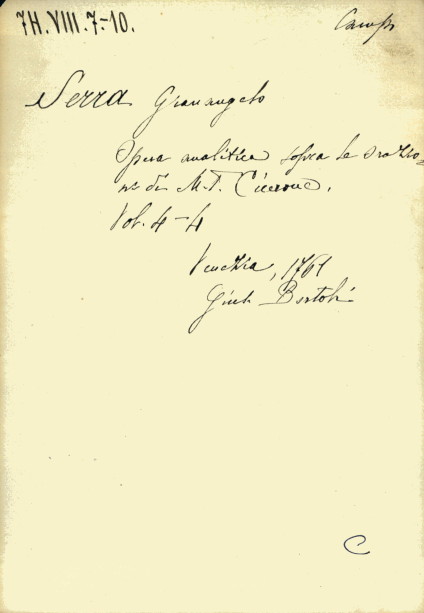 7H.VIII.7-10.
Camps
Serra Gianangelo
Opera analitica sopra le orazio=
ni di M.T. Cicerone.
Vol. 4-4
Venezia, 1761
Bortoli
C